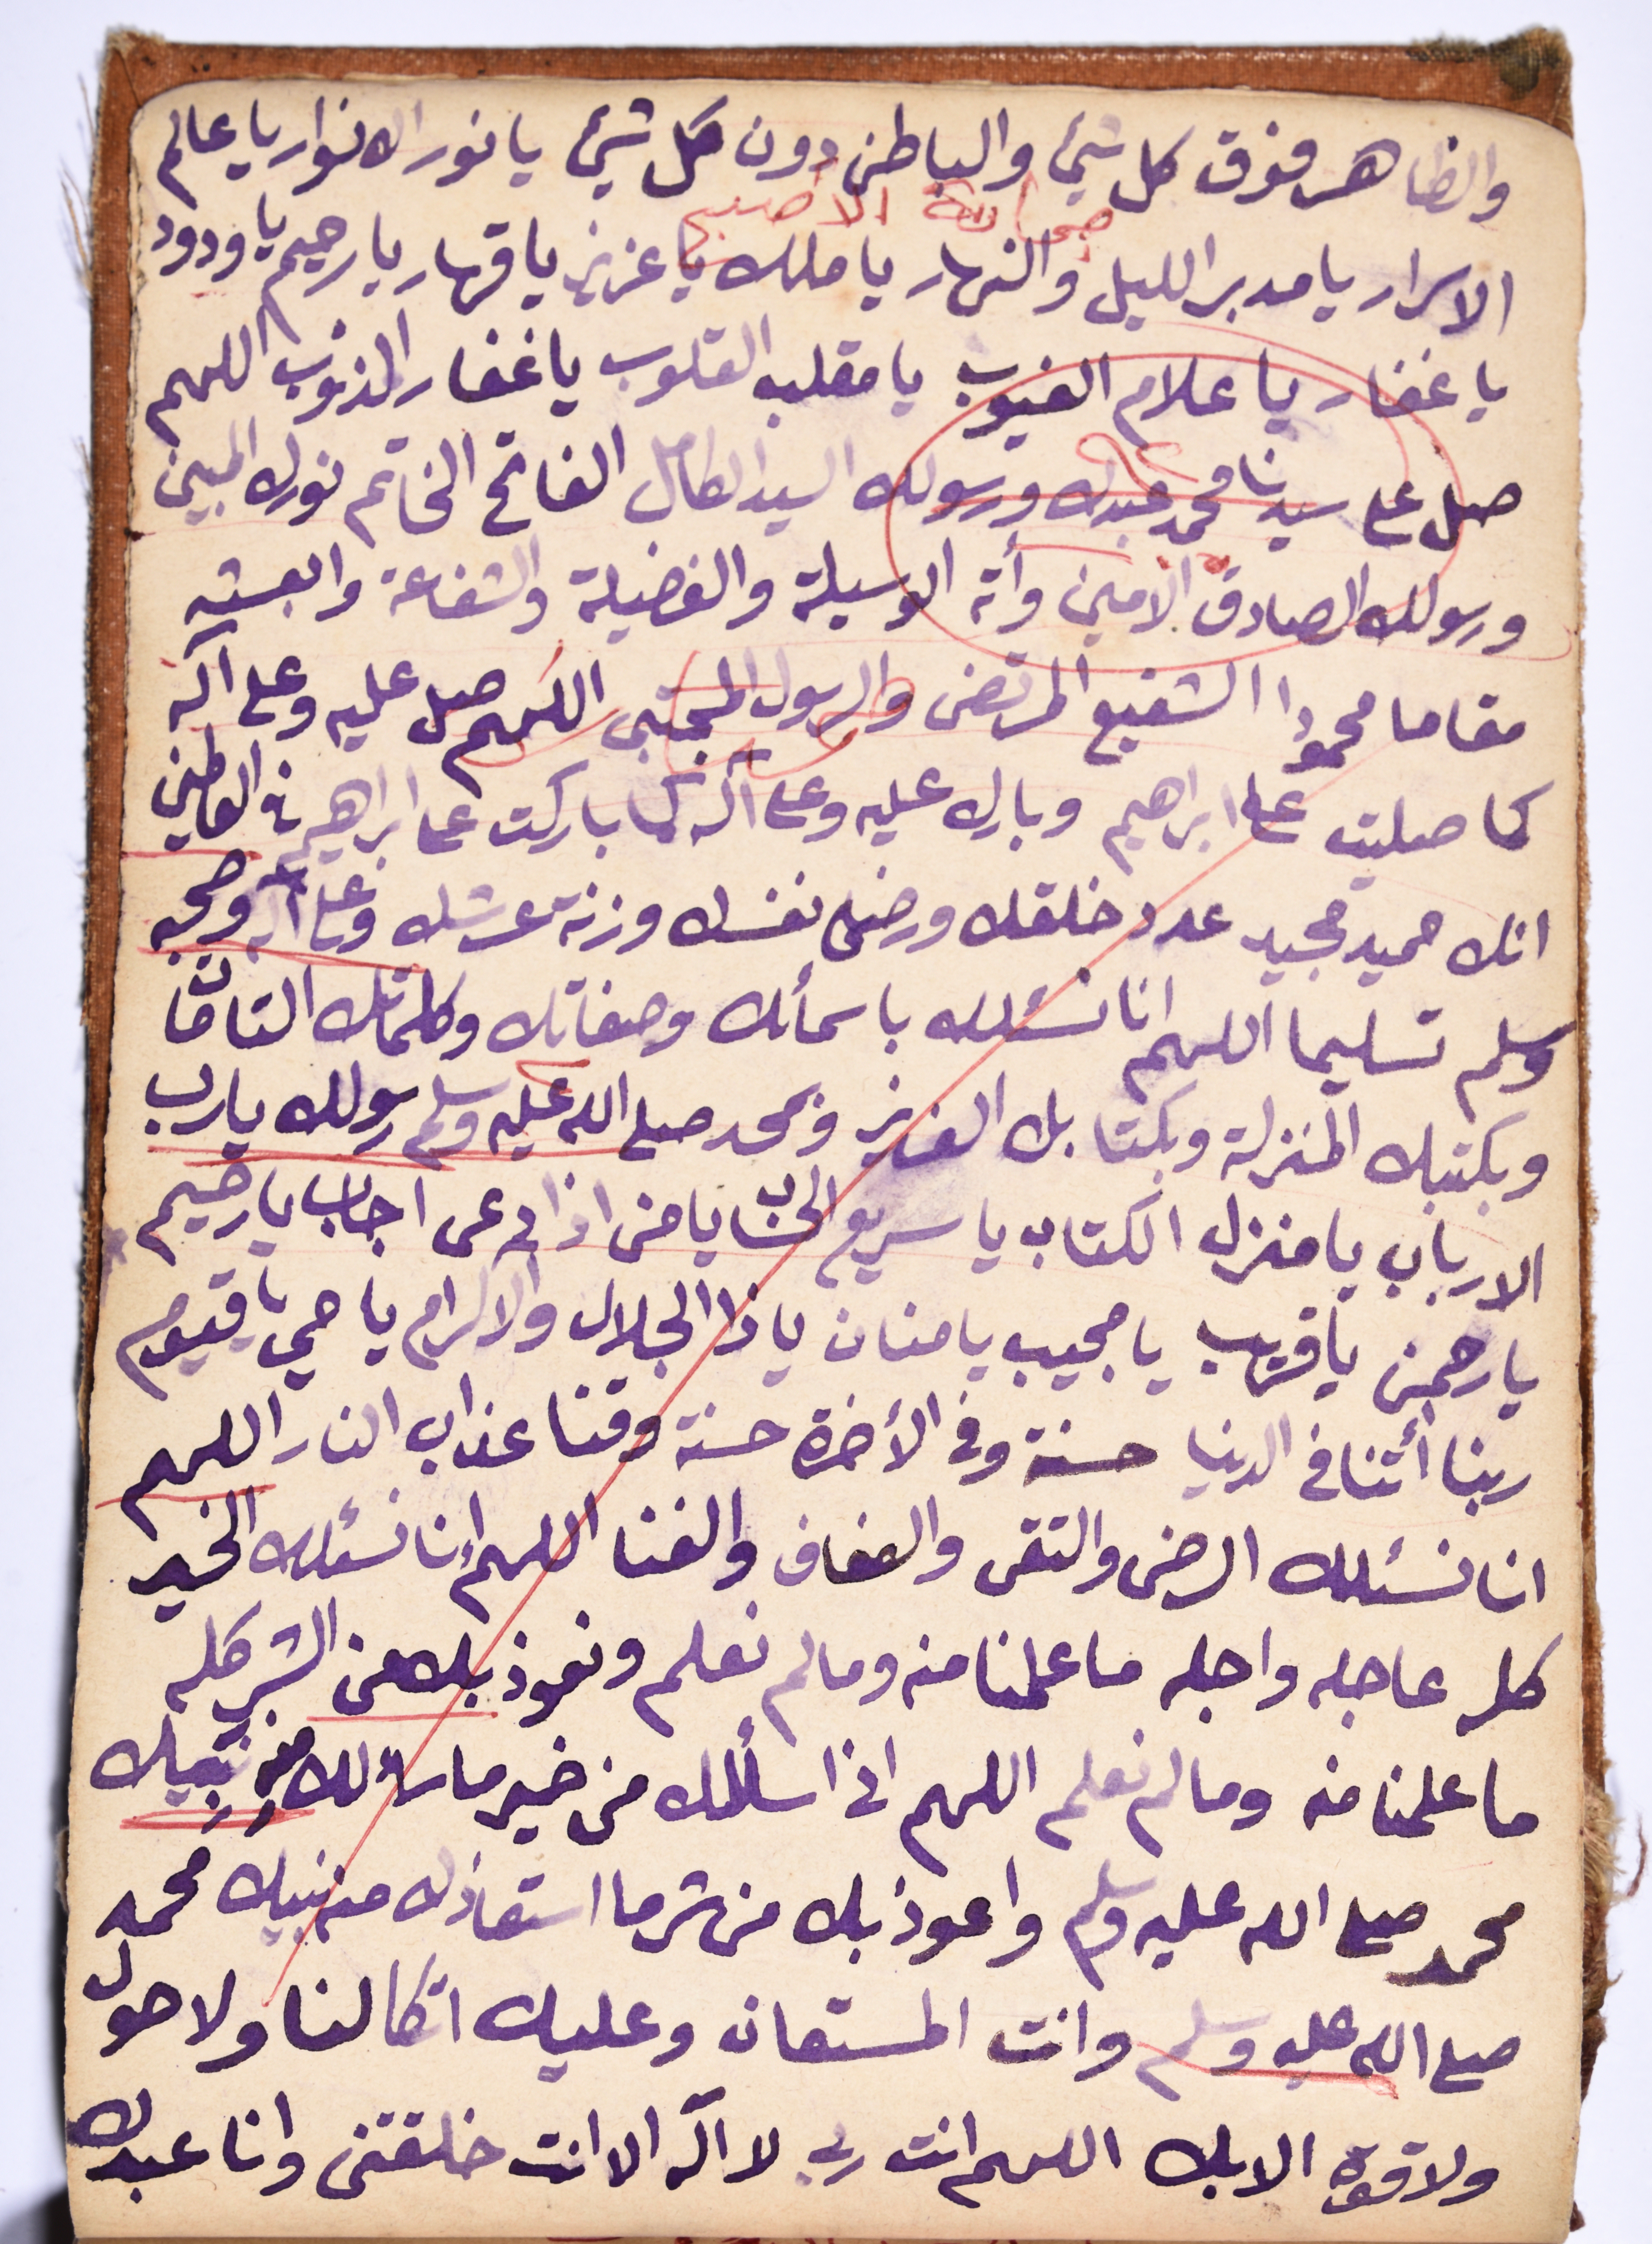 والظاهر فوق كل شيئ والباطن دون كل شيئ يا نور الانوار يا عالم
الاسرار يا مدبر الليل والنهار يا ملك يا عزيز يا قهار يا رحيم يا ودود
يا غفار يا علام الغيوب يا مقلب القلوب يا غفار الذنوب اللهم
صل على سيدنا محمد عبدك ورسولك السيد الكامل الفاتح الخاتم نورك المبين
ورسولك الصادق الامين وأته الوسيلة والفضيلة والشفاعة وابعثه
مقاما محمودا الشفيع المرتضى والرسول المجتبى اللهم صل عليه وعلى آله
كما صليت على ابراهيم وبارك عليه وعلى آله كما باركت على ابراهيم في العالمين
انك حميد مجيد عدد خلقك ورضى نفسك وزنة عرشك وعلى آله وصحبه
وسلم تسليما اللهم انا نسئلك باسمأك وصفاتك وكلماتك التامات
وبكتبك المنزلة وبكتابك العزيز وبمحمد صلى الله عليه وسلم رسولك يا رب
الارباب يا منزل الكتاب يا سريع الحساب يا من اذا دعى اجاب يا رحيم
يا رحمن يا قريب يا مجيب يا منان يا ذا الجلال والاكرام يا حي يا قيوم
ربنا أتنا في الدنيا حسنة وفي الأخرة حسنة وقنا عذاب النار اللهم
انا نسئلك الرضى والتقى والعفاف والغنا اللهم إنا نسئلك الخير
كله عاجله واجله ما علمنا منه وما لم نعلم ونعوذ بك من الشر كله
ما علمنا منه وما لم نعلم اللهم اني اسألك من خير ما سألك منه نبيك
محمد صلى الله عليه وسلم واعوذ بك من شر ما استعاذك منه نبيك محمد
صلى الله عليه وسلم وانت المستعان وعليك اتكالنا ولا حول
ولا قوة الا بك اللهم انت ربي لا اله الا انت خلقتنى وانا عبدك